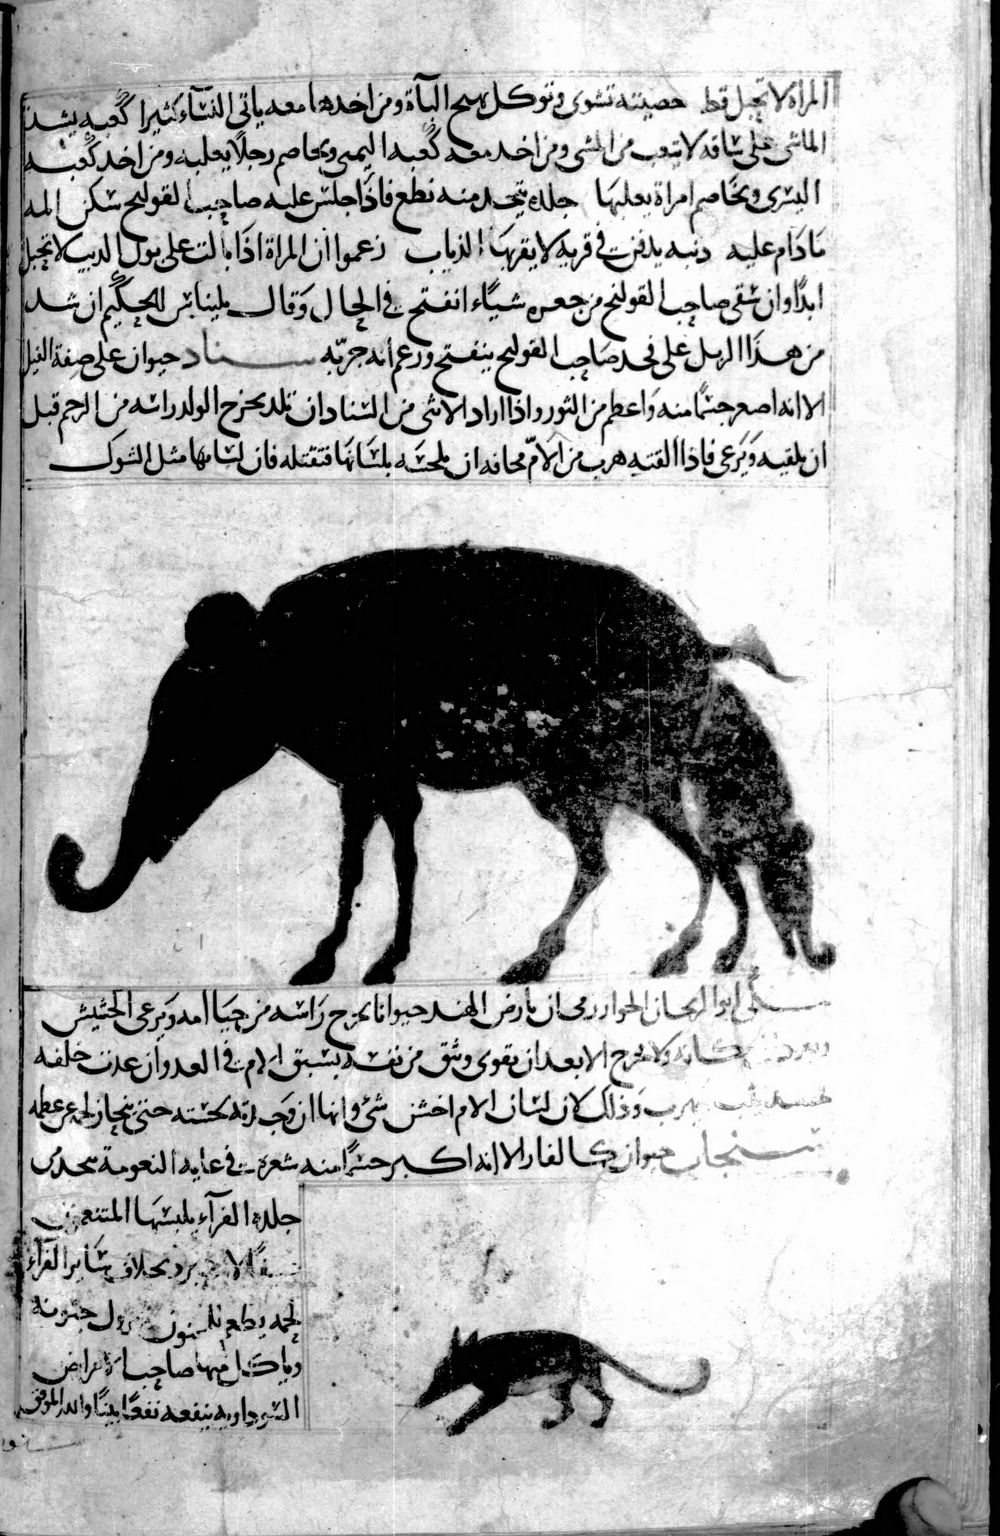 المراة لا تحبل قط خصيته تشوى وتوكل تهيج الباة ومن اخدها معه ياتى النسآء كثيرا كعبه يشد
الماشى على ساقه لا يتعب من المشى ومن اخد معه كعبه اليمنى ويخاصم رجلا يغلبه ومن اخد كعبه
اليسرى ويخاصم امراة يغلبها جلده يتخد منه نطع فاذا جلس عليه صاحب القولنج سكن المه
مادام عليه دنبه يدفن في قرية لا يقربها الذياب زعموا ان المراة اذا بالت على بول الديب لا تحبل
ابدا وان سقى صاحب القولنج من جعره شياء انفتح في الحال وقال بليناس الحكيم ان شد
من هذا الزبل على فخد صاحب القولنج ينفتح وزعم انه جربه سناد حيوان على صفة الفيل
الا انه اصغر جثما منه واعظم من الثور واذا اراد الانثى من السناد ان تلد يخرج الولد راسه من الرحم قبل
ان يلقيه ويرعى فاذا القته هرب من الام مخافه ان تلحسه بلسانها فتقتله فان لسانها مثل الشوك
ابوا الريحان الخوارزمى ان بارض الهند حيوانا يخرج راسه من حيا امه ويرعى الحشيش
ولا يخرج الا بعد ان يقوى وثق من نفسه بسبق الام في العدو ان عدت خلفه
يهرب وذلك لان لسان الام اخشن شئ وانها ان وجدته لحسته حتى ينحاز لحمه عن عظمه
سنجاب حيوان كالفار الا انه اكبر جثما منه شعره في غاية النعومة يتخد من
جلده الفرآء يلبسها المتنعمون
لا برد بخلاف سآير الفرآء
لحمه يطعم للمجنون يزول جنونه
وياكل منها صاحب الامراض
السوداوية ينفعه نفعا بينا والله الموفق
سنور